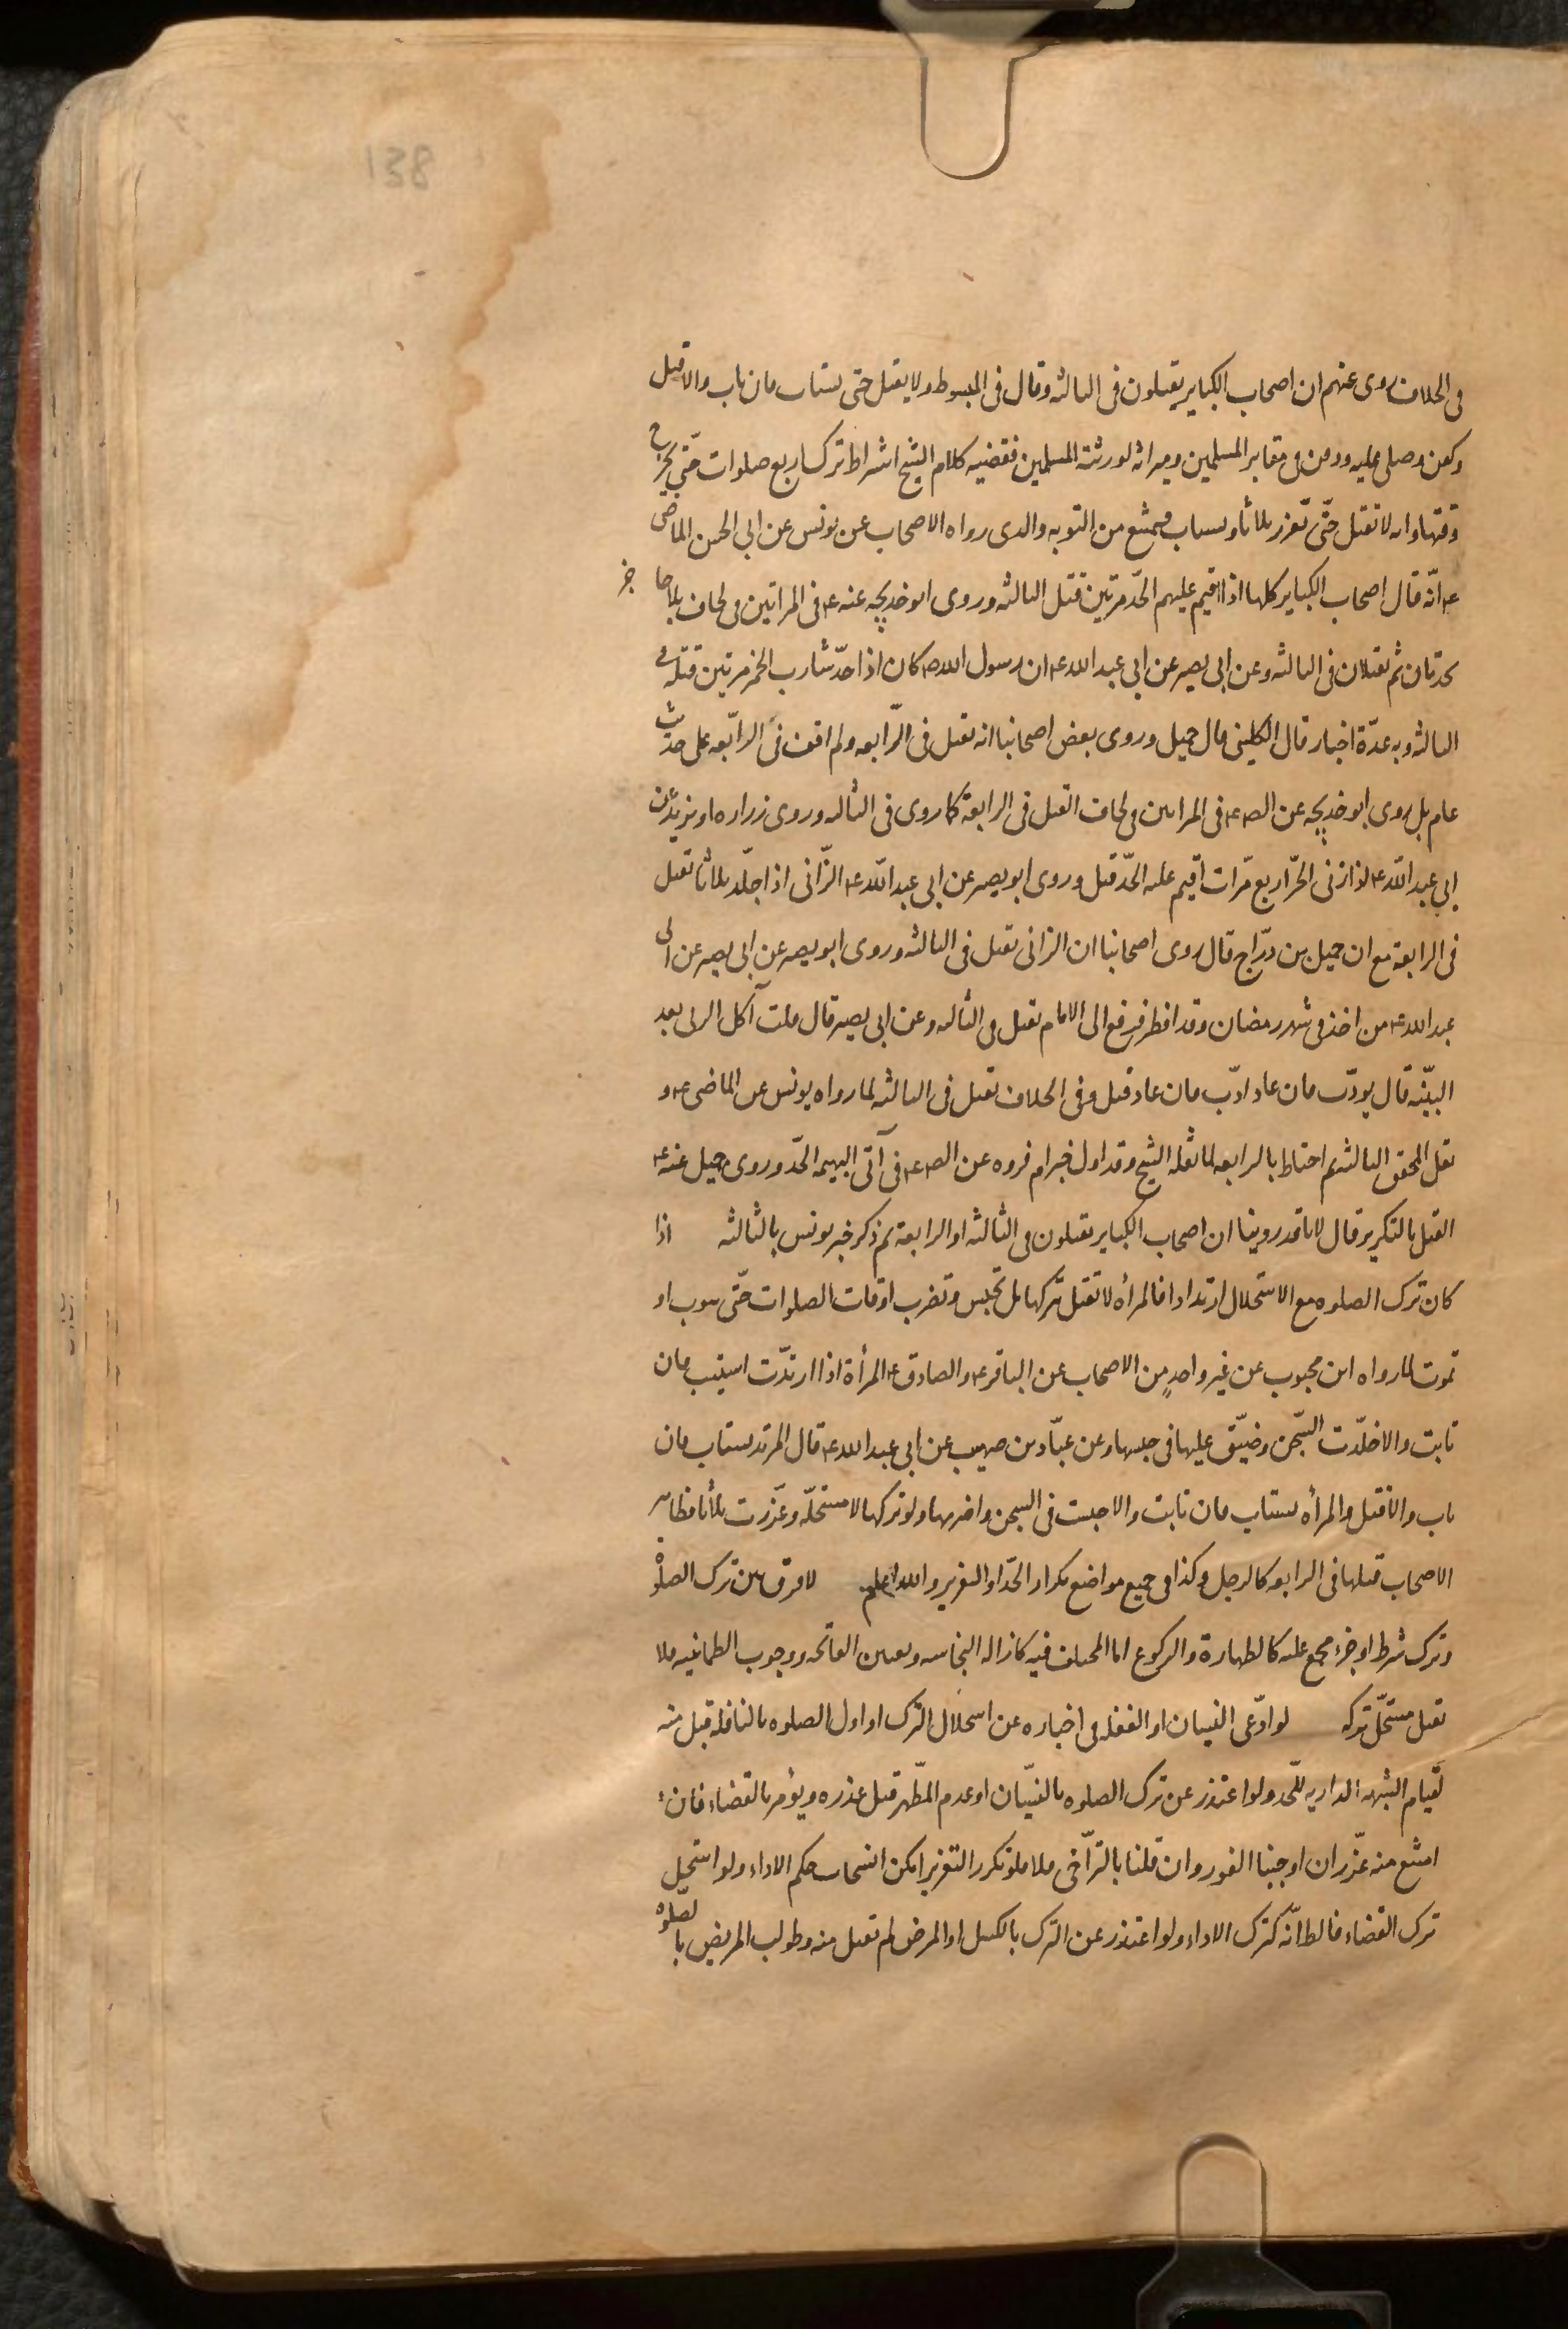 138
فى الخلاف روى عنهم ان اصحاب الكباير يقتلون فى الثالثه وقال فى المبسوط ولا يقتل حتى يستتاب فان تاب والا قتل
وكفن وصلى عليه ودفن فى مقابر المسلمين وميراثه لورثته المسلمين فقضيه كلام الشيخ اشتراط ترك اربع صلوات حتّى يخرج
وقتها وانه لا تقتل حتّى تعزر ثلاثا ويستتاب فيمتنع من التوبه والذى رواه الاصحاب عن يونس عن ابى الحسن الماضى
ع انّه قال اصحاب الكباير كلها اذا اقيم عليهم الحدّ مرتين قتل الثالثه وروى ابو خديجه عنه ع فى المراتين فى لحاف
تحدّان ثم تقتلان فى الثالثه وعن ابى بصير عن ابى عبد الله ع ان رسول الله ص كان اذا حدّ شارب الخمر مرتين قتله فى
الثالثه وبه عدّة اخبار قال الكلينى قال جميل وروى بعض اصحابنا انه تقتل فى الرّابعه ولم اقف فى الرابّعه على حديث
عام بل روى ابو خديجه عن الص ع فى المراتين فى لحاف القتل فى الرابعة كما روى فى الثالثه وروى زراره او بريد عن
ابى عبد الله ع اذا زنى الحرّ اربع مّرات اقيم عليه الحدّ قتل وروى ابو بصير عن ابى عبد الله ع الزّانى اذا جلّد ثلاثا تقتل
فى الرابعة مع ان جميل بن درّاج قال روى اصحابنا ان الزانى تقتل فى الثالثه وروى ابو بصير عن ابى بصير عن ابى
عبد الله ع من اخذ فى شهر رمضان وقد افطر فرفع الى الامام تقتل فى الثالثه وعن ابى بصير قال قلت آكل الربى بعد
البيّنه قال يودّب فان عاد ادّب فان عاد قتل وفى الخلاف تقتل فى الثالثه لما رواه يونس عن الماضى ع و
نقل المحقق الثالثه ثم احتاط بالرابعه لما نقله الشيخ وقد اول خبر ام فروه عن الص ع فى آتى البهيمه الحدّ وروى جميل عنه ع
القتل بالتكرير قال لانا قد روينا ان اصحاب الكباير تقتلون فى الثالثه او الرابعة ثم ذكر خبر يونس بالثالثه اذا
كان ترك الصلوه مع الاستحلال ارتدادا فالمرأه لا تقتل بتركها بل تحبس وتضرب اوقات الصلوات حتّى تتوب او
تموت لما رواه ابن محبوب عن غير واحدٍ من الاصحاب عن الباقر ع والصادق ع المرأة اذا ارتدّت استتيب فان
تابت والا خلّدت السّجن وضيّق عليها فى حبسها وعن عبّاد بن صهيب عن ابى عبد الله ع قال المرتد يستتاب فان
تاب والا قتل والمرأه تستتاب فان تابت والا حبست فى السجن واضر بها ولو تركها لا مستحلّه وعّزرت ثلاثا فظاهر
الاصحاب قتلها فى الرابعه كالرجل وكذا فى جميع مواضع تكرار الحدّ او التعزير والله اعلم لا فرق بين ترك الصلوة
وترك شرط او جزء مجمع عليه كالطهارة والركوع اما المختلف فيه كازاله النجاسه وتعيين الفاتحه ووجوب الطمانينه فلا
تقتل مستحلّ تركه لو ادّعى النسيان او الغفله فى اخباره عن استحلال الترك او اول الصلوه بالنافله قبل منه
لقيام الشبهه الداريه للّحد ولو اعتذر عن ترك الصلوه بالنسيّان او عدم المّطهر قبل عذره ويؤمر بالقضاء فان
امتنع منه عزّر ان اوجبنا الفور وان قلنا بالترّاخى فلا فلو تكرر التعزير امكن انسحاب حكم الاداء ولو استحيل
ترك القضاء فالظ انّه كترك الاداء ولو اعتذر عن الترك بالكسل او المرض لم تقبل منه وطولب المريض بالصلوه